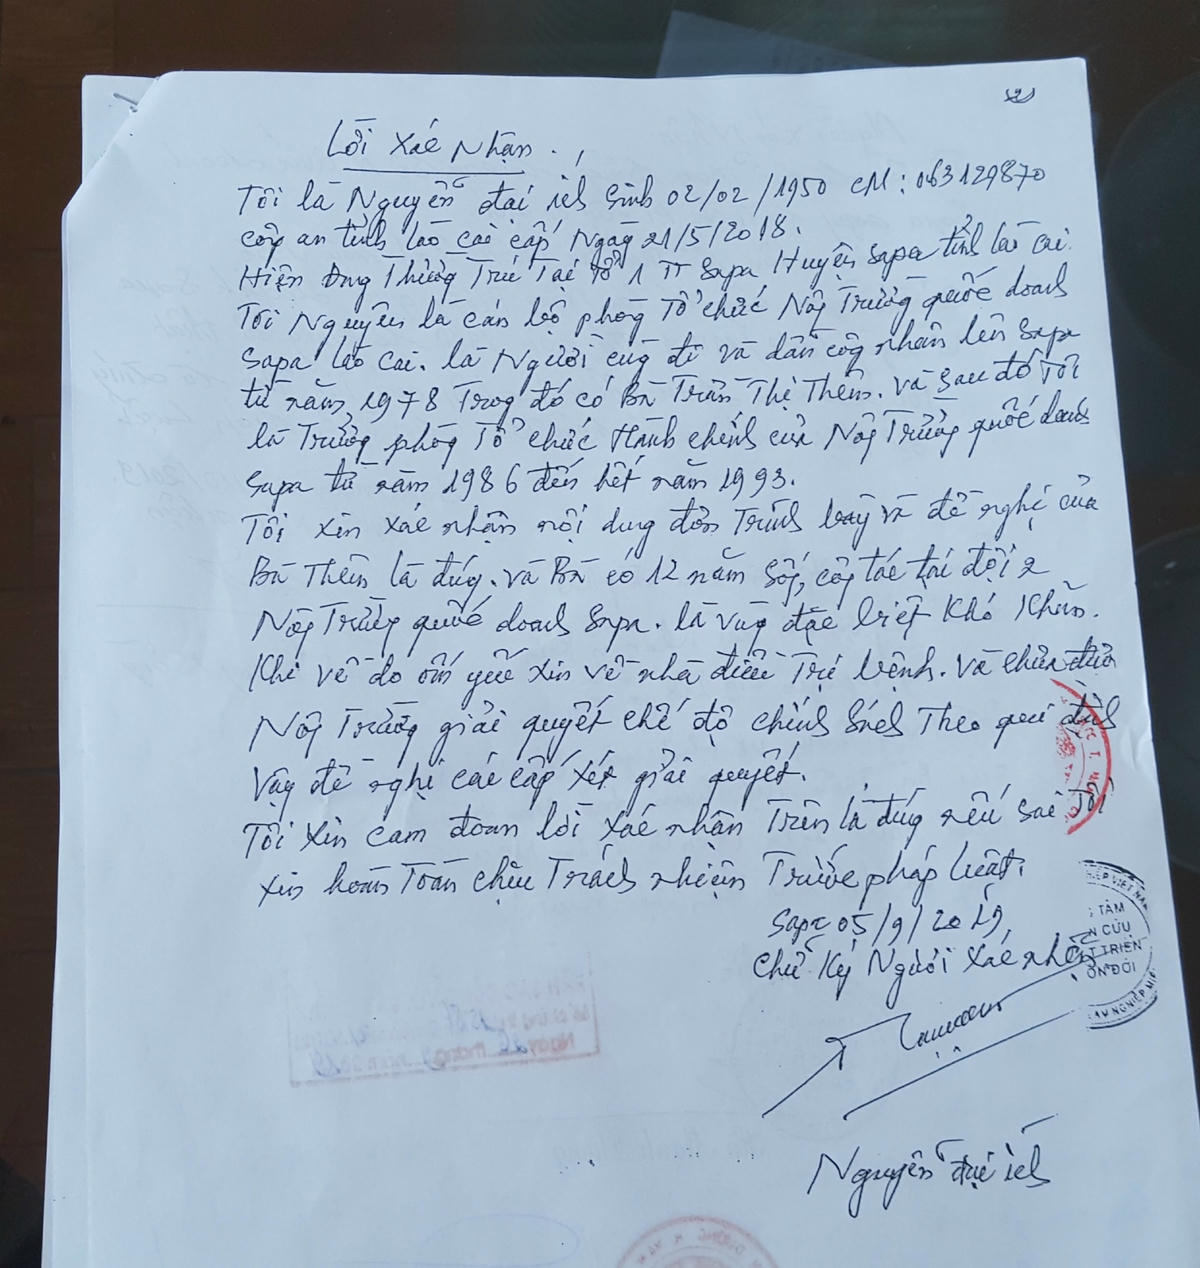 Lời Xác Nhận.
Tôi là Nguyễn đại ích Sinh 02/02/1950 CM: 063129870
công an tỉnh lào cai cấp Ngày 21/5/2018.
Hiện Đang Thường Trú Tại Tổ 1 TT Sapa Huyện Sapa tỉnh lào cai.
Tôi Nguyên là cán bộ phòng Tổ chức Nông Trường quốc doanh
Sapa lào cai. là Người cùng đi và dẫn công nhân lên Sapa
từ năm 1978 Trong đó có Bà Trần Thị Thêm. và sau đó Tôi
là Trưởng phòng Tổ chức Hành chính của Nông Trường quốc doanh
Sapa từ năm 1986 đến hết năm 1993.
Tôi xin xác nhận nội dung đơn Trình bày và đề nghị của
Bà Thêm là đúng. và Bà có 12 năm sống, công tác tại đội 2
Nông Trường quốc doanh Sapa. là vùng đặc biệt Khó Khăn.
Khi về do ốm yếu xin về nhà điều Trị bệnh. và chưa được
Nông Trường giải quyết chế độ chính sách Theo qui định
Vậy đề nghị các cấp xét giải quyết.
Tôi xin cam đoan lời xác nhận Trên là đúng nếu sai Tôi
xin hoàn Toàn chịu Trách nhiệm Trước pháp luật.
Sapa 05/9/2019
Chữ Ký Người xác nhận
TÂM
CỨU
TRIỂN
Nguyễn đại ích